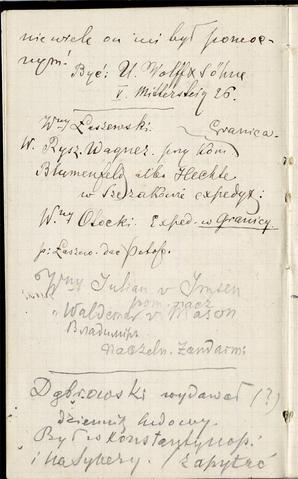 niewiele on mi był pomoc-
nym!
Być: U. Wolff & Söhne
V. Mittersteig 26.
Wny Laszewski. Granica.
W. Rysz. Wagner. przy Kom
Blumenfeld albo Hechte
w Szczakowie expedyt:
Wny Otocki. Exped. w Granicy.
p: Laszew. dać
Wny Julian v
pom. nacz
"Waldemar v Mason
Владиміръ
naczeln. Żandarm:
Dąbrowski wydawał (?)
dziennik ludowy.
Był w Konstantynop:
i na Sybery. Zapytać